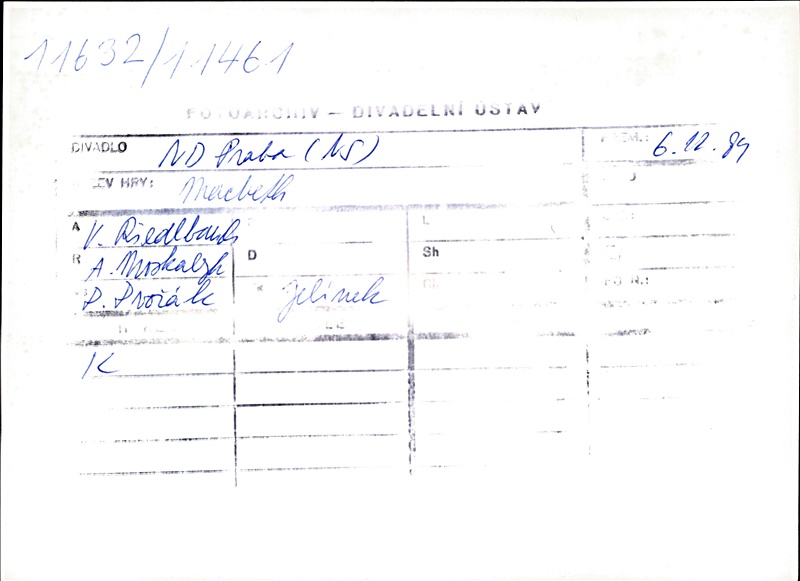 11632/11461
FOTOARCHIV – DIVADELNÍ ÚSTAV
DIVADLO ND Praha (NS) 6.12.89
EV HRY: Macbeth
A V. Riedlbauch L
R A. Moskalyk D Sh
P. Dvořák Jelínek
K